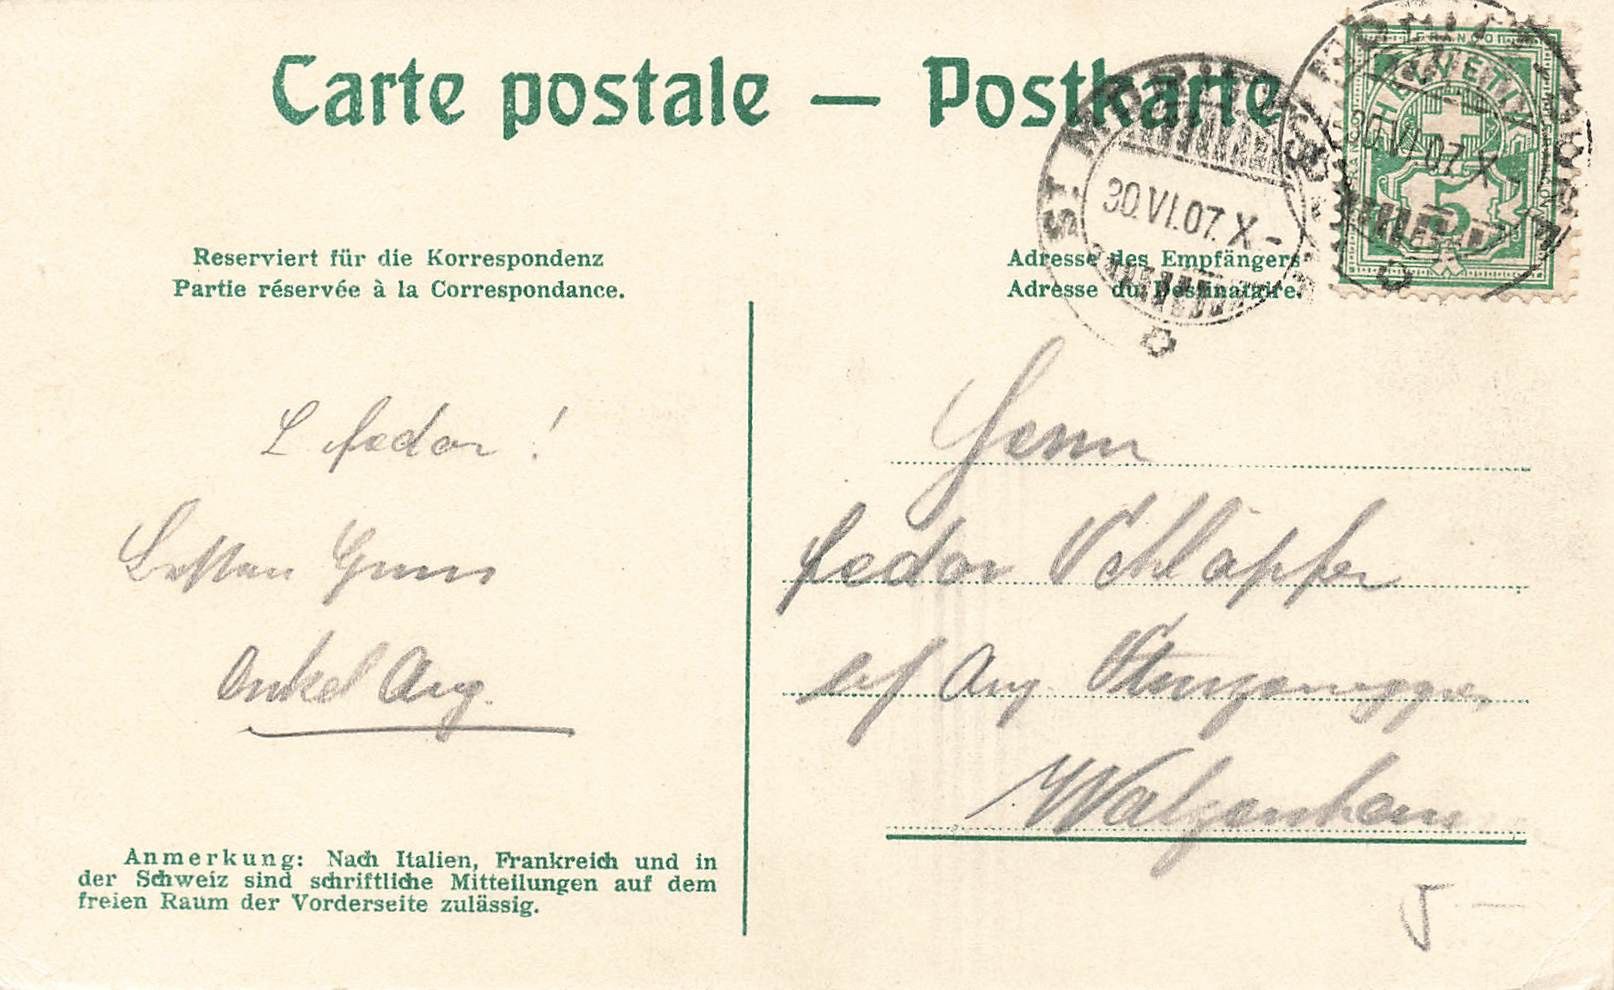 Carte postale — Postkarte
FRANCO
HELVETIA
5
30.VI.07.X-
30.VI.07.X-
ST. M
Reserviert für die Korrespondenz
Partie réservée à la Correspondance.
Adresse des Empfängers.
Adresse du Destinataire.
L Fedor!
Besten Gruss
Onkel Aug.
Herrn
Fedor Schläpfer
Aug.
Walzenhausen
Anmerkung: Nach Italien, Frankreich und in
der Schweiz sind schriftliche Mitteilungen auf dem
freien Raum der Vorderseite zulässig.
5.—